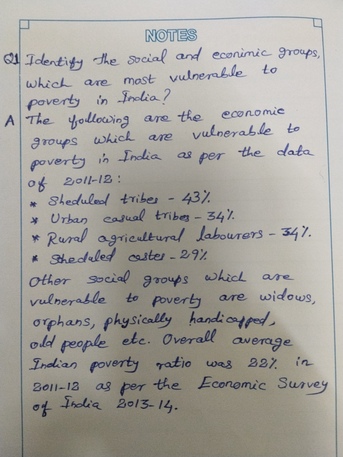 NOTES
Q1 Identify the social and econimic groups,
which are most vulnerable to
poverty in India?
A The following are the economic
groups which are vulnerable to
poverty in India as per the data
of 2011-12:
* Sheduled tribes - 43%
* Urban casual tribes - 34%
* Rural agricultural labourers - 34%
* Sheduled castes - 29%
Other social groups which are
vulnerable to poverty are widows,
orphans, physically handicapped,
old people etc. Overall average
Indian poverty ratio was 22% in
2011-12 as per the Economic Survey
of India 2013-14.